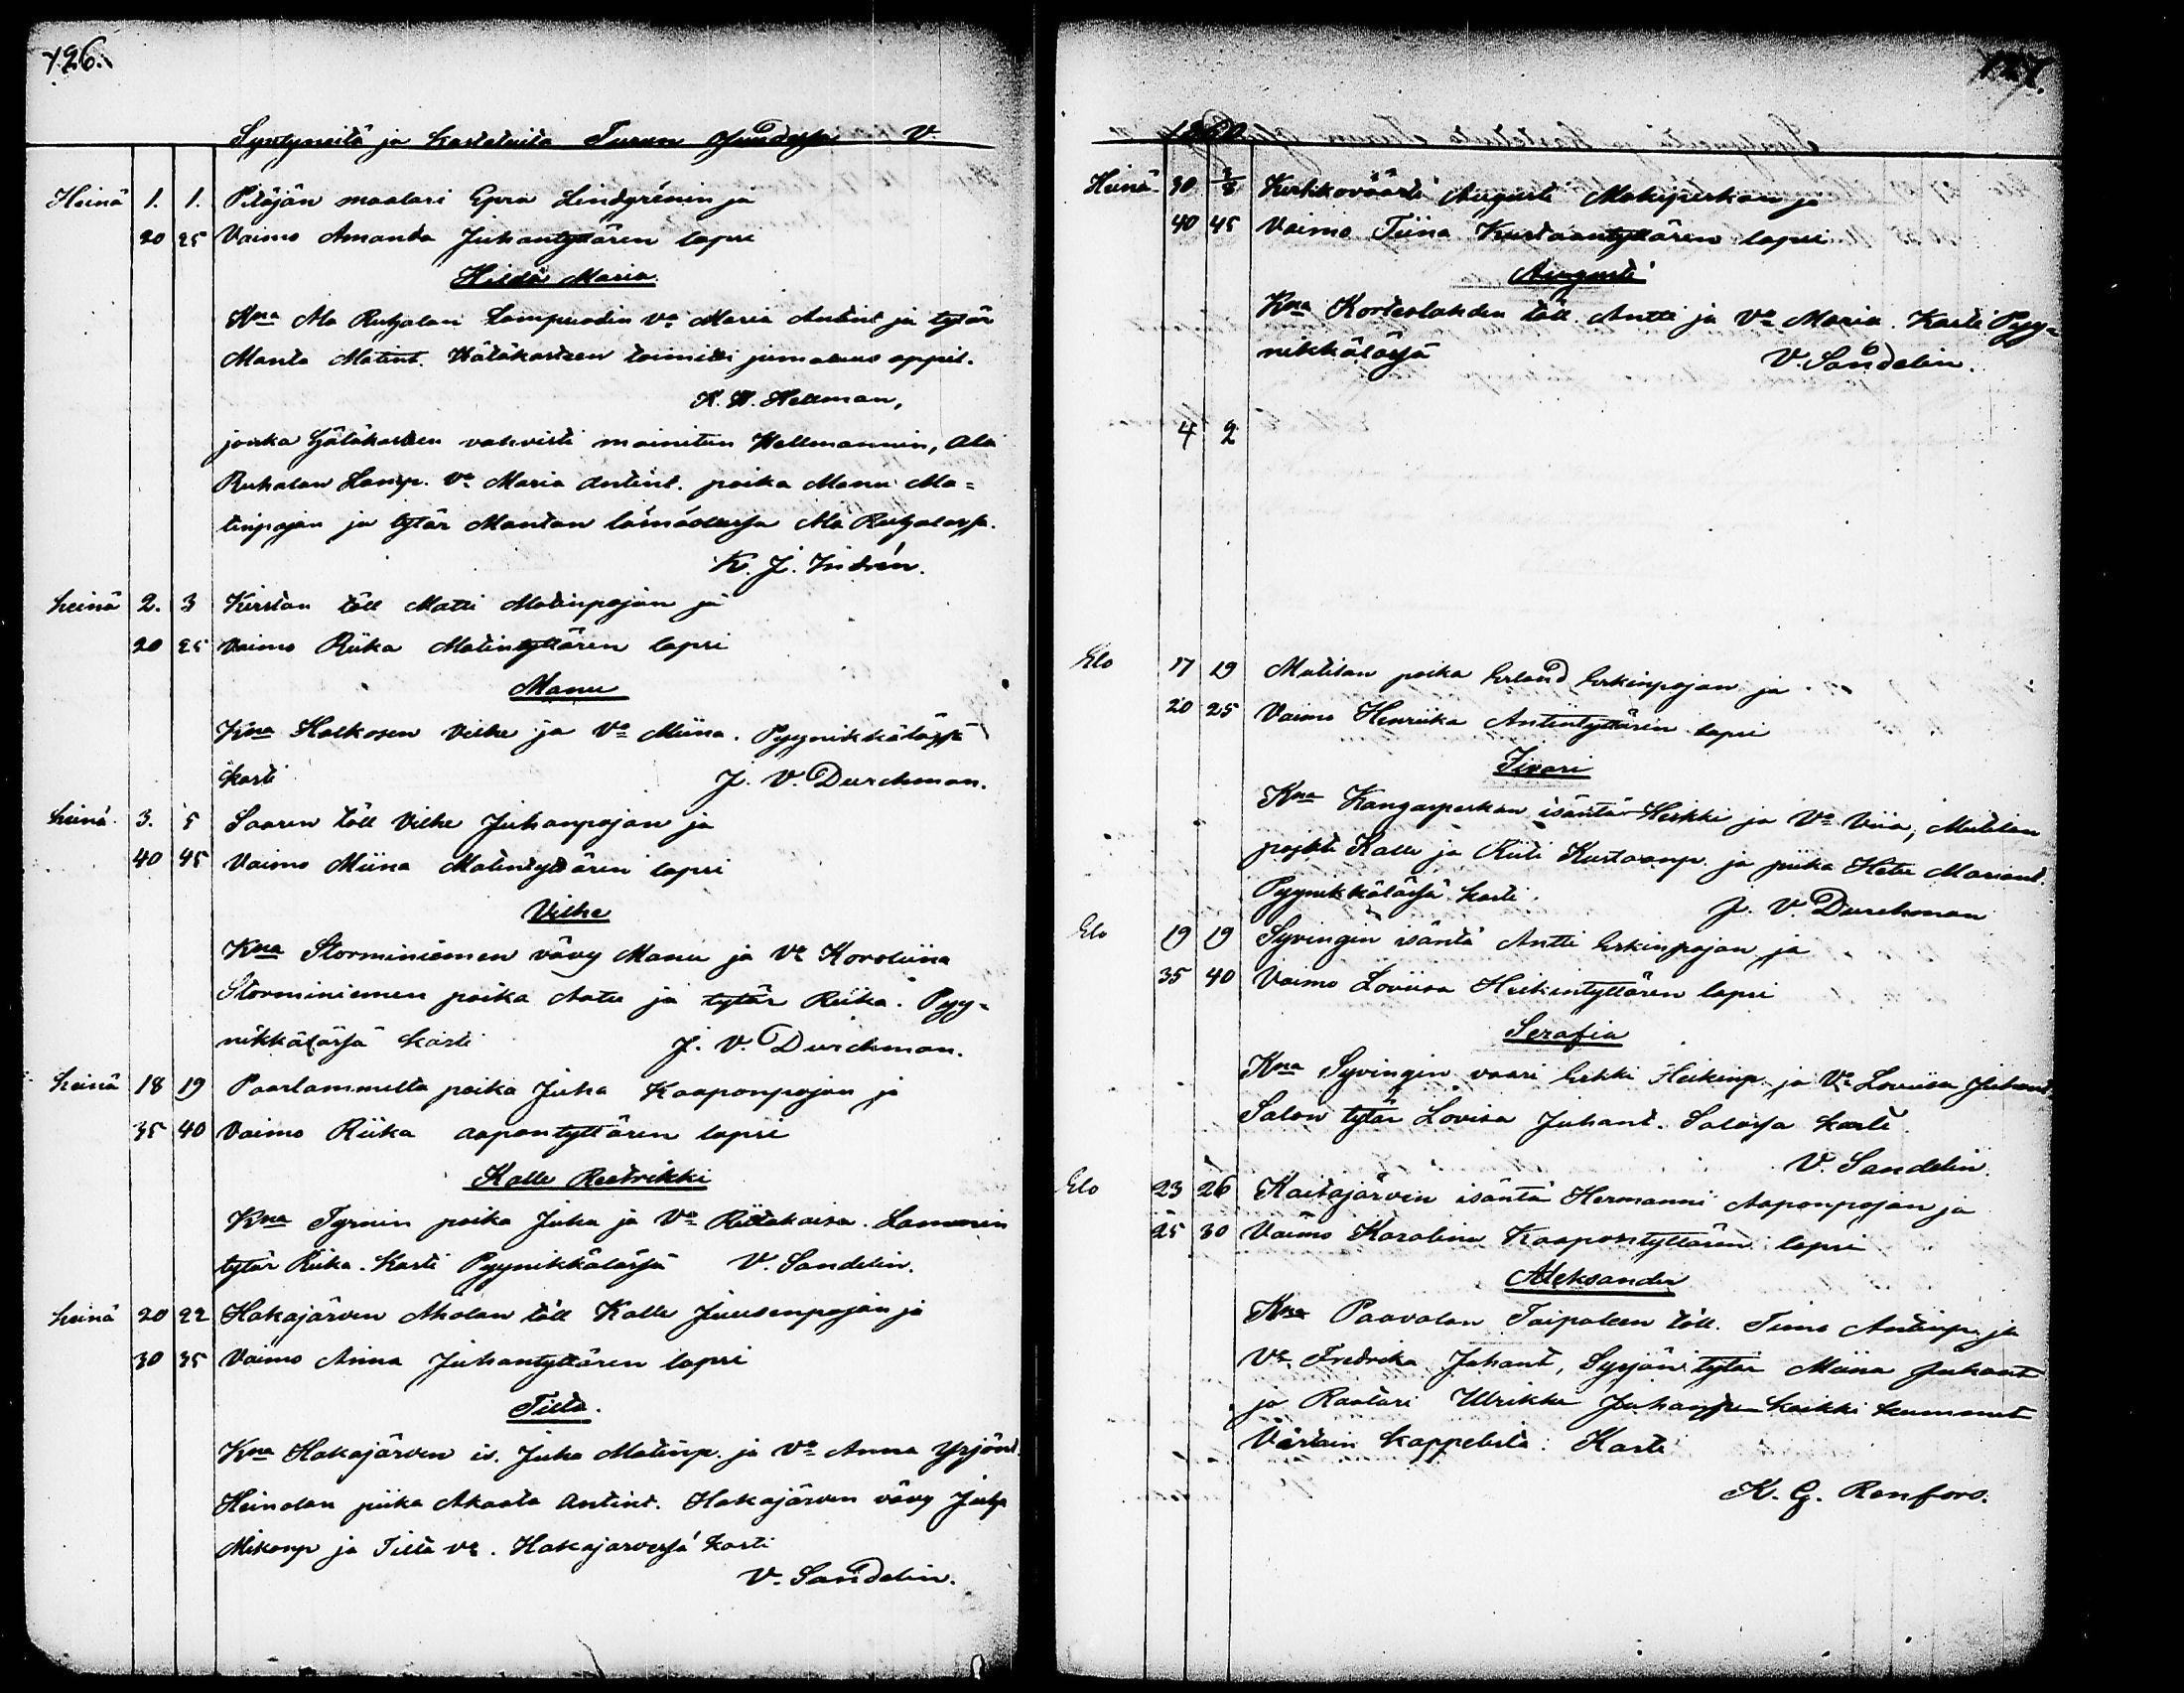 126.
Syntyneitä ja kastetuita Turun V.
Heinä 1. 1. Pitäjän maalari Epra Lindgrénin ja
20 25 Vaimo Amanda Juhantyttären lapsi
Hilda Maria
Kna Ala Ruhalan Lampuodin Va Maria Antint ja tytär
Manta Matint. Hätäkasteen toimitti jumaluus oppil.
K. W. Hellman,
jonka hätäkasteen vahvisti mainitun Hellmannin, Ala
Ruhalan Lamp. Va Maria Antint. poika Manu Ma=
tinpojan ja tytär Mantan läsnäollessa Ala Ruhalassa.
K. J. Indrén.
heinä 2. 3 töll Matti Matinpojan ja
20 25 Vaimo Riika Matintyttären lapsi
Manu
Kna Halkosen Vilhe ja Va Miina. Pyynikkälässä
kasti J. V. Durchman.
heinä 3. 5 Saaren töll Vilhe Juhanpojan ja
40 45 Vaimo Miina Matintyttären lapsi
Vilhe
Kna Storminiemen vävy Manu ja Va Karoliina
Storminiemen poika Aatu ja tytär Riika. Pyy=
nikkälässä kasti J. V. Durchman.
heinä 18 19 Paarlammelta poika Juha Kaaponpojan ja
35 40 Vaimo Riika Aapontyttären lapsi
Kalle Reetrikki
Kna Tyrnin poika Juha ja Va Riittakaisa. Lammin
tytär Riika. Kasti Pyynikkälässä V. Sandelin.
heinä 20 22 Hakajärven Aholan töll Kalle Juusenpojan ja
30 35 Vaimo Anna Juhantyttären lapsi
Tilta.
Kna Hakajärven is. Juha Matinp. ja Va Anna Yrjönt.
Heinolan piika Akaata Antint. Hakajärven vävy Juha
Mikonp ja Tilta Va. Hakajärvessä kasti
V. Sandelin.
127.
Heinä 30 Kirkkoväärti Augusti Makuperkan ja
40 45 Vaimo Tiina Kustaantyttären lapsi
Augusti
Kna Korteslahden töll Antti ja Va Maria. Kasti Pyy=
nikkälässä V. Sandelin.
4 2
Elo 17 19 Mutilan poika Erland Erkinpojan ja
20 25 Vaimo Henriika Antintyttären lapsi
Iivari
Kna Kangasperkan isäntä Heikki ja Va Viia, Mutilan
pojat Kalle ja Kustaanp. ja piika Mariant.
Pyynikkälässä kasti J. V. Durchman
Elo 19 19 Syvingin isäntä Antti Erkinpojan ja
35 40 Vaimo Loviisa Heikintyttären lapsi
Serafia
Kna Syvingin vaari Erkki Heikinp. ja Va Loviisa Juhant
Salon tytär Lovisa Juhant. Salossa kasti
V. Sandelin.
Elo 23 26 Kaitajärvin isäntä Hermanni Aaponpojan ja
25 30 Vaimo Karolina Kaapontyttären lapsi
Aleksander
Kna Paavolan Taipaleen töll. Timo Antinp. ja
Va Fredrika Juhant, Syrjän tytär Miina Juhant
ja Raatari Ulrikka Juhanp kaikki kummit
kappelista. Kasti
K. G. Renfors.